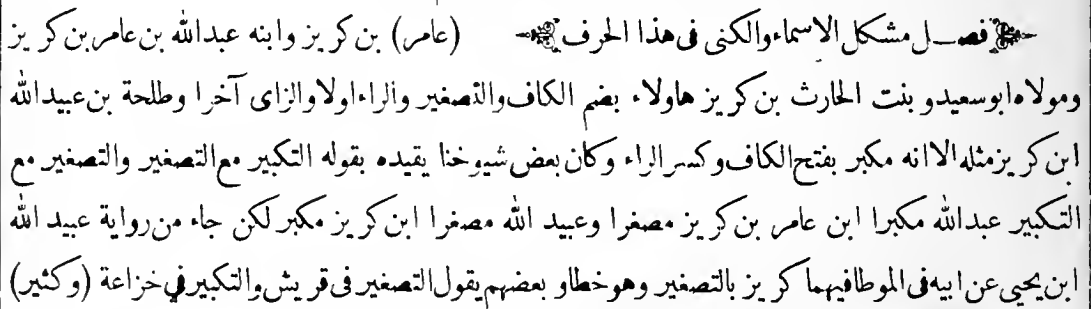 فصل مشكل الاسماء والكنى فى هذا الحرف (عامر) بن كريز وابنه عبدالله بن عامر بن كريز
ومولاه ابوسعيد وبنت الحارث بن كريز هاولاء بضم الكاف والتصغير والراء اولا والزاى آخرا وطلحة بن عبيدالله
ابن كريز مثله الا انه مكبر بفتح الكاف وكسر الراء وكان بعض شيوخنا يقيده بقوله التكبير مع التصغير والتصغير مع
التكبير عبدالله مكبرا ابن عامر بن كريز مصغرا وعبيد الله مصغرا ابن كريز مكبر لكن جاء من رواية عبيد الله
ابن يحيى عن ابيه فى الموطا فيهما كريز بالتصغير وهو خطا و بعضهم يقول التصغير فى قريش والتكبير في خزاعة (وكثير)